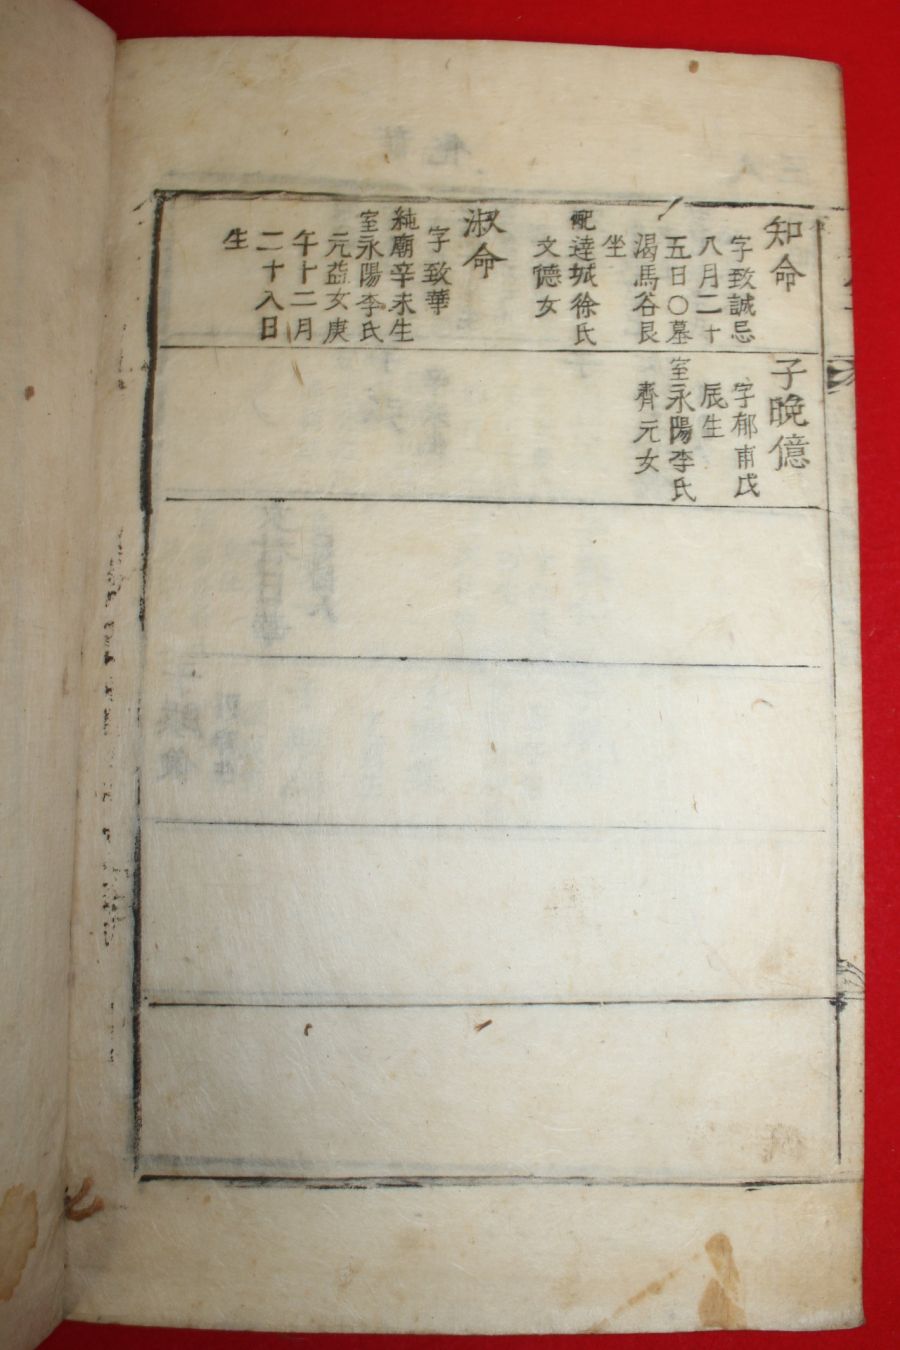 知命
字致誠忌
八月二十
五日〇墓
渴馬谷艮
坐
配達城徐氏
文德女
淑命
字致華
純廟辛未生
室永陽李氏
元益女庚
午十二月
二十八日
生
子晩億
字郁甫戊
辰生
室永陽李氏
齊元女